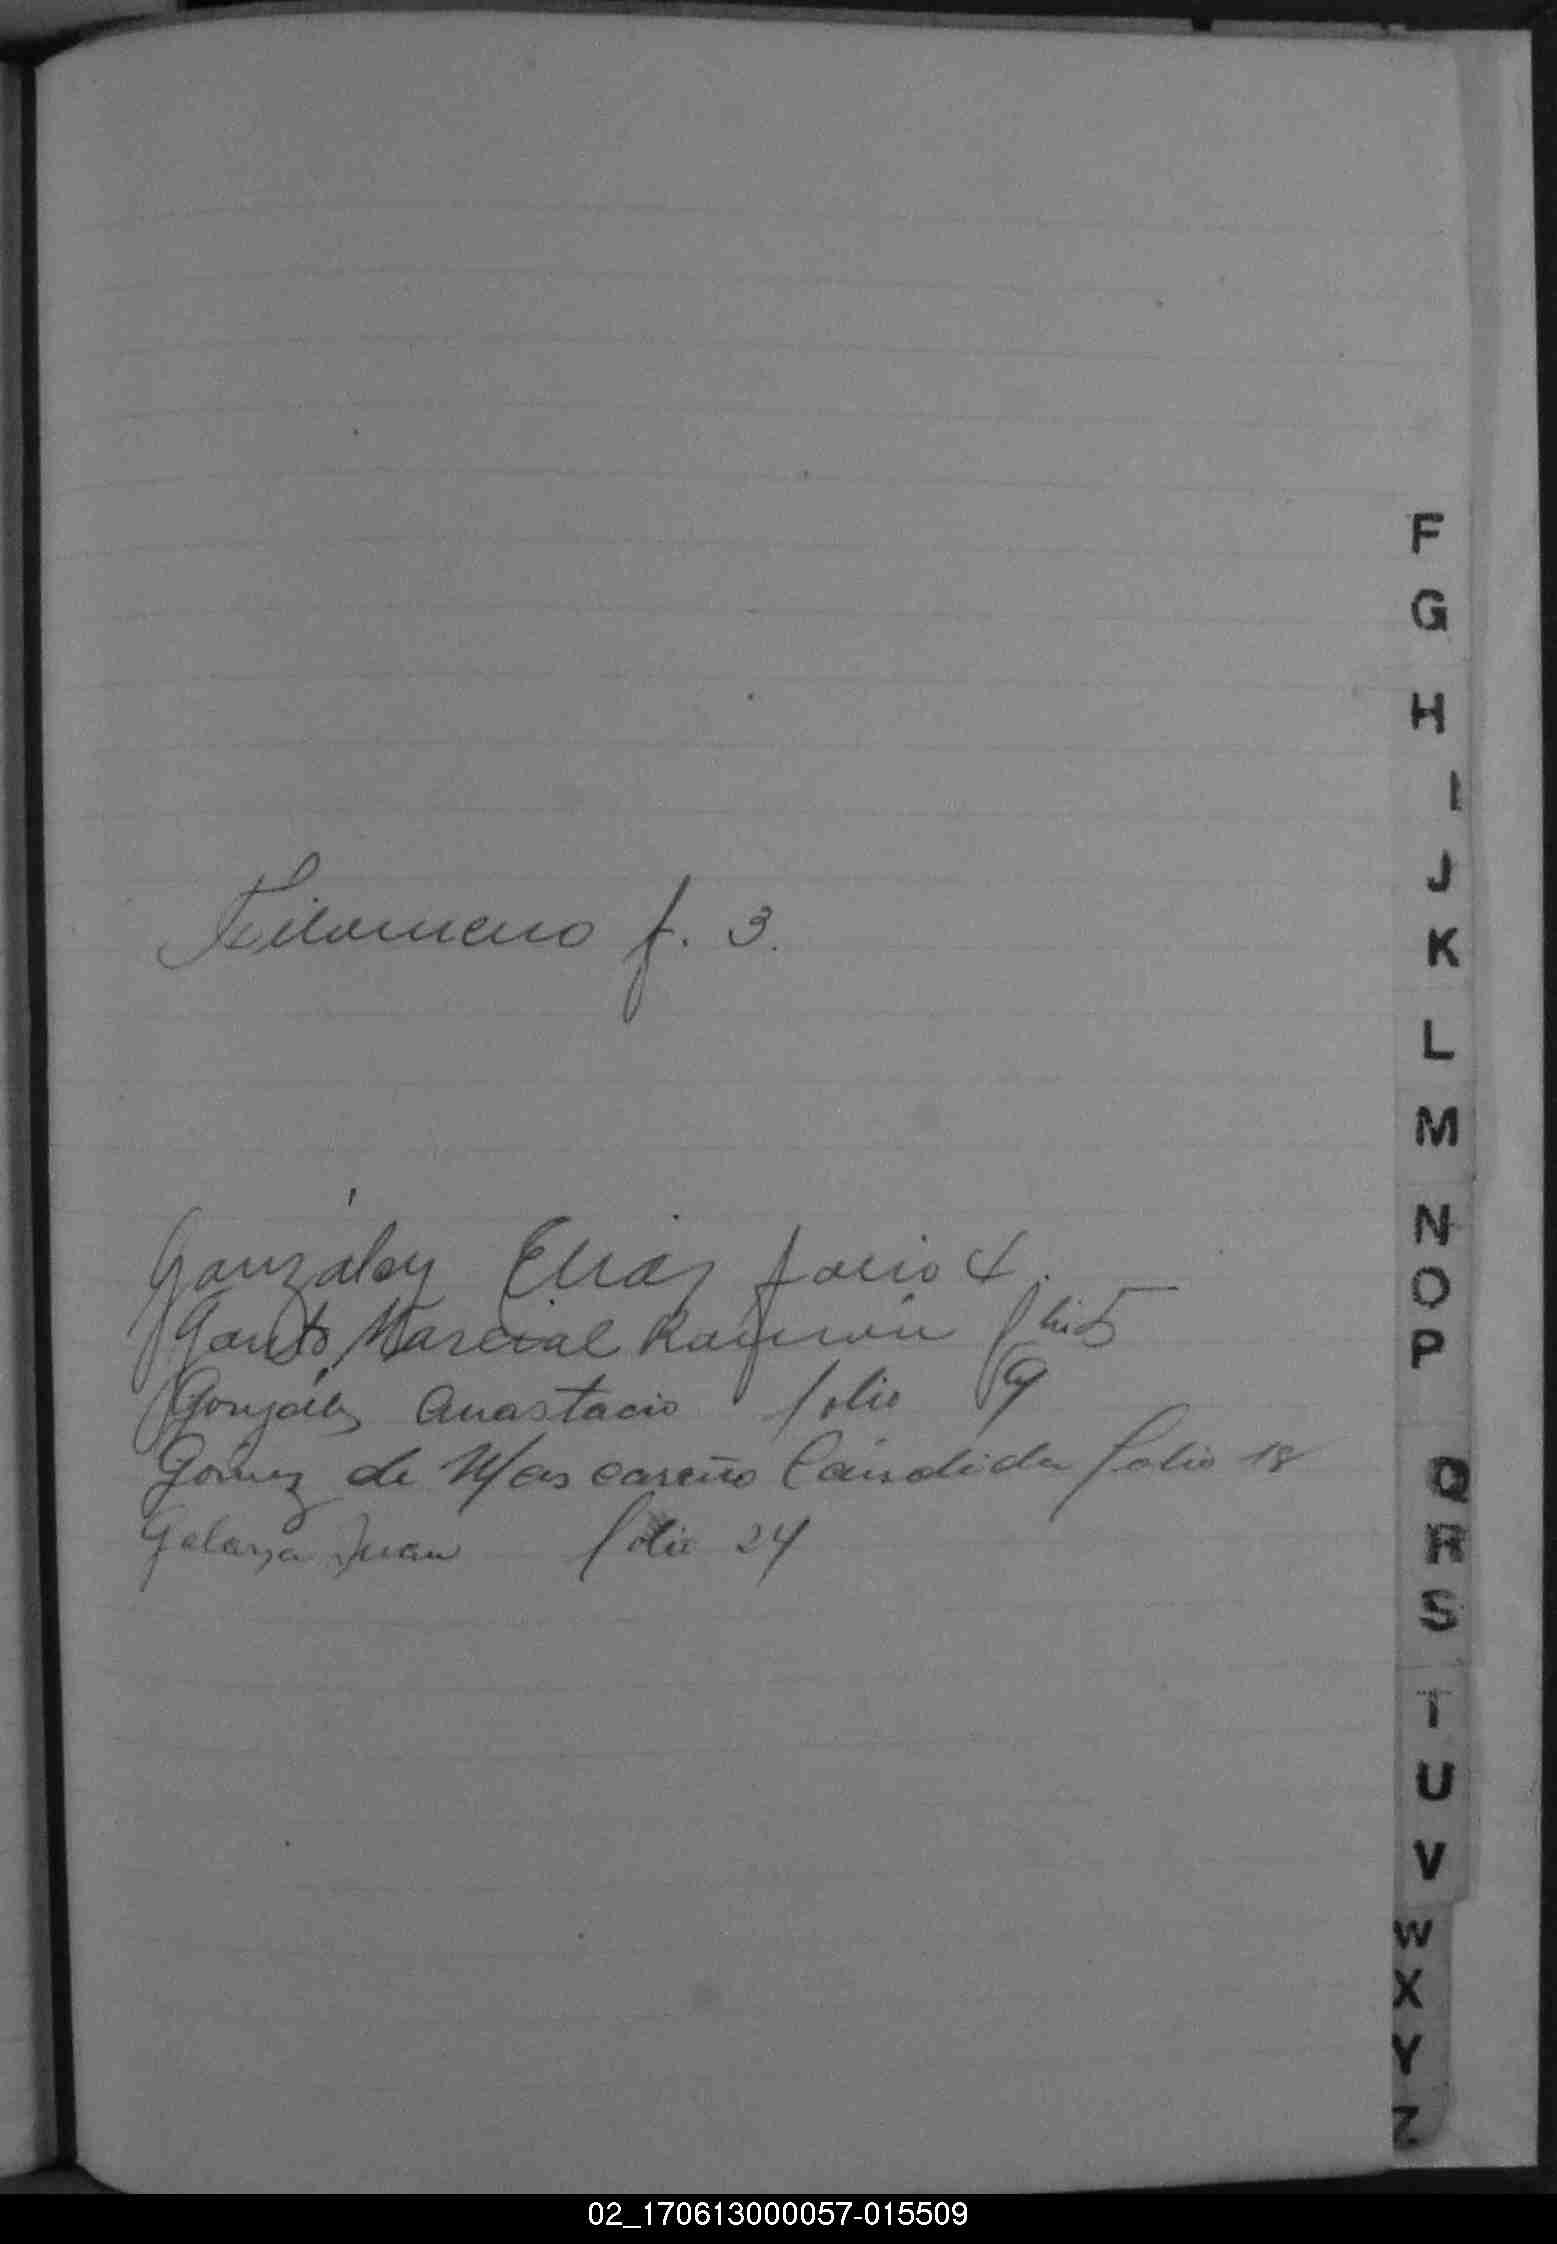 Filomeno f. 3.
González Elías folio 4.
Marcial Ramón folio 5
González Anastacio folio 9
Gómez de Mascareño Cándida folio 18
Galarza Juan folio 24
F
G
H
I
J
K
L
M
N
O
P
Q
R
S
T
U
V
W
X
Y
Z
02_170613000057-015509